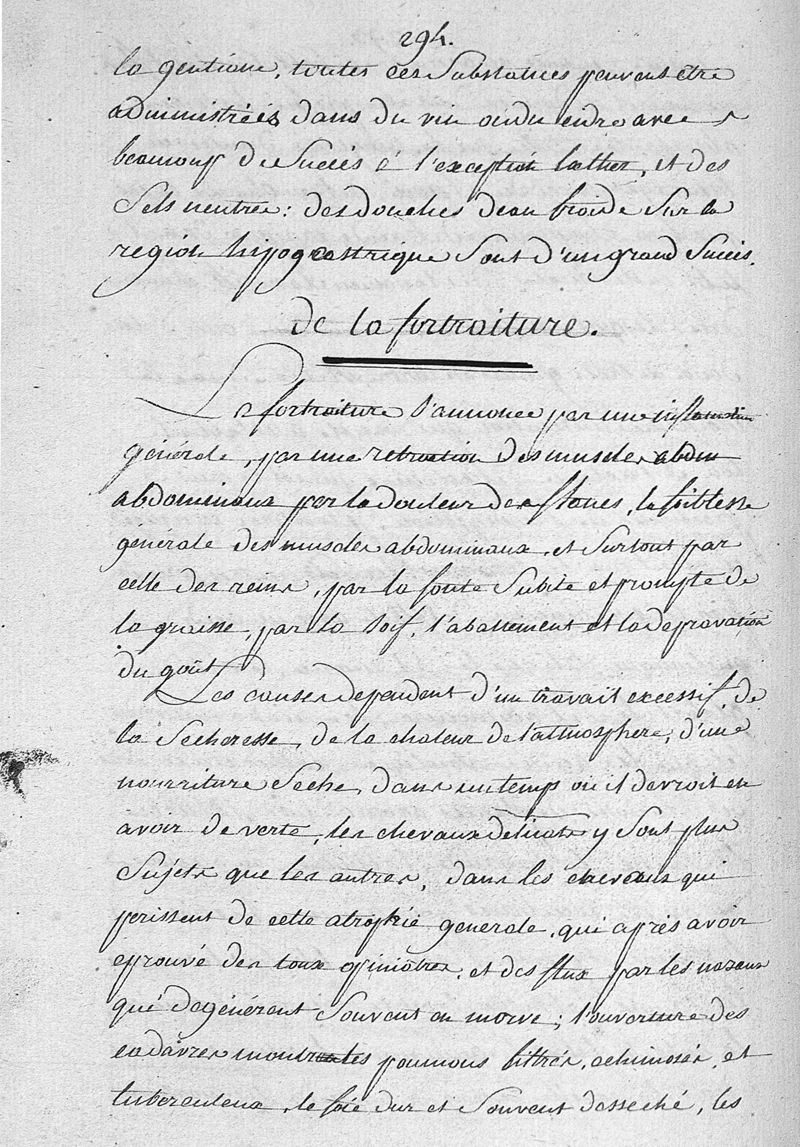 294.
la gentiane, toutes ces Substances peuvent être
administrées dans du vin ou du cidre avec
beaucoup de Succès à l'exception l'ether, et des
Sels neutres : des douches d'eau froide Sur la
region hipogastrique Sont d'un grand Succès.
de la fortraiture.
La fortraiture S'annonce par une
générale, par une retraction des muscles abdom
abdominaux par la douleur des flancs, la foiblesse
generale des muscles abdominaux, et Surtout par
celle des reins, par la fonte Subite et prompte de
la graisse, par la Soif, l'abattement et la depravation
du goût.
Les causes dependent d'un travail excessif, de
la Secheresse, de la chaleur de l'atmosphere, d'une
nourriture Seche, dans un temps où il devroit en
avoir de verte, les chevaux délicats y Sont plus
Sujets que les autres, dans les chevaux qui
perissent de cette atrophie generale, qui après avoir
eprouvé des toux opiniâtres, et des flux par les nazeaux
qui dégénérent Souvent en morve ; l'ouverture des
cadâvres montre les poumons, echimosés, et
tuberculeux, le foie dur et Souvent desseché, les